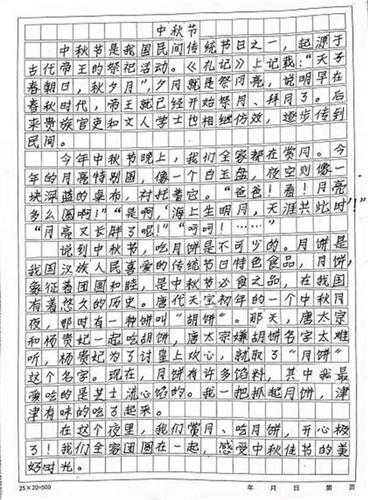 中秋节
中秋节是我国民间传统节日之一，起源于
古代帝王的祭祀活动。《礼记》上记载：“天子
春朝日，秋夕月”，夕月就是祭月亮，说明早在
春秋时代，帝王就已经开始祭月、拜月了。后
来贵族官吏和文人学士也相继仿效，逐步传到
民间。
今年中秋节晚上，我们全家都在赏月。今
年的月亮特别圆，像一个白玉盘，夜空则像一
块深蓝的桌布，衬托着它。“爸爸！看！月亮
多么圆啊！”“是啊，‘海上生明月，天涯共此时’！”
“月亮又长胖了呢！”“呵呵！……”
说到中秋节，吃月饼是不可少的。月饼是
我国汉族人民喜爱的传统节日特色食品，月饼
象征着团圆和睦，是中秋节必食之品，在我国
有着悠久的历史。唐代天宝初年的一个中秋月
夜，那时有一种饼叫“胡饼”。那天，唐太宗
和杨贵妃一起吃胡饼，唐太宗嫌胡饼名字太难
听，杨贵妃为了讨皇上欢心，就取了“月饼”
这个名字。现在，月饼有许多馅料，其中我最
爱吃的是芝士流心馅的。我一把抓起月饼，津
津有味的吃了起来。
在这个夜里，我们赏月、吃月饼，开心极
了！我们全家团圆在一起，感受中秋佳节的美
好时光。
25×20=500 年 月 日 第 页